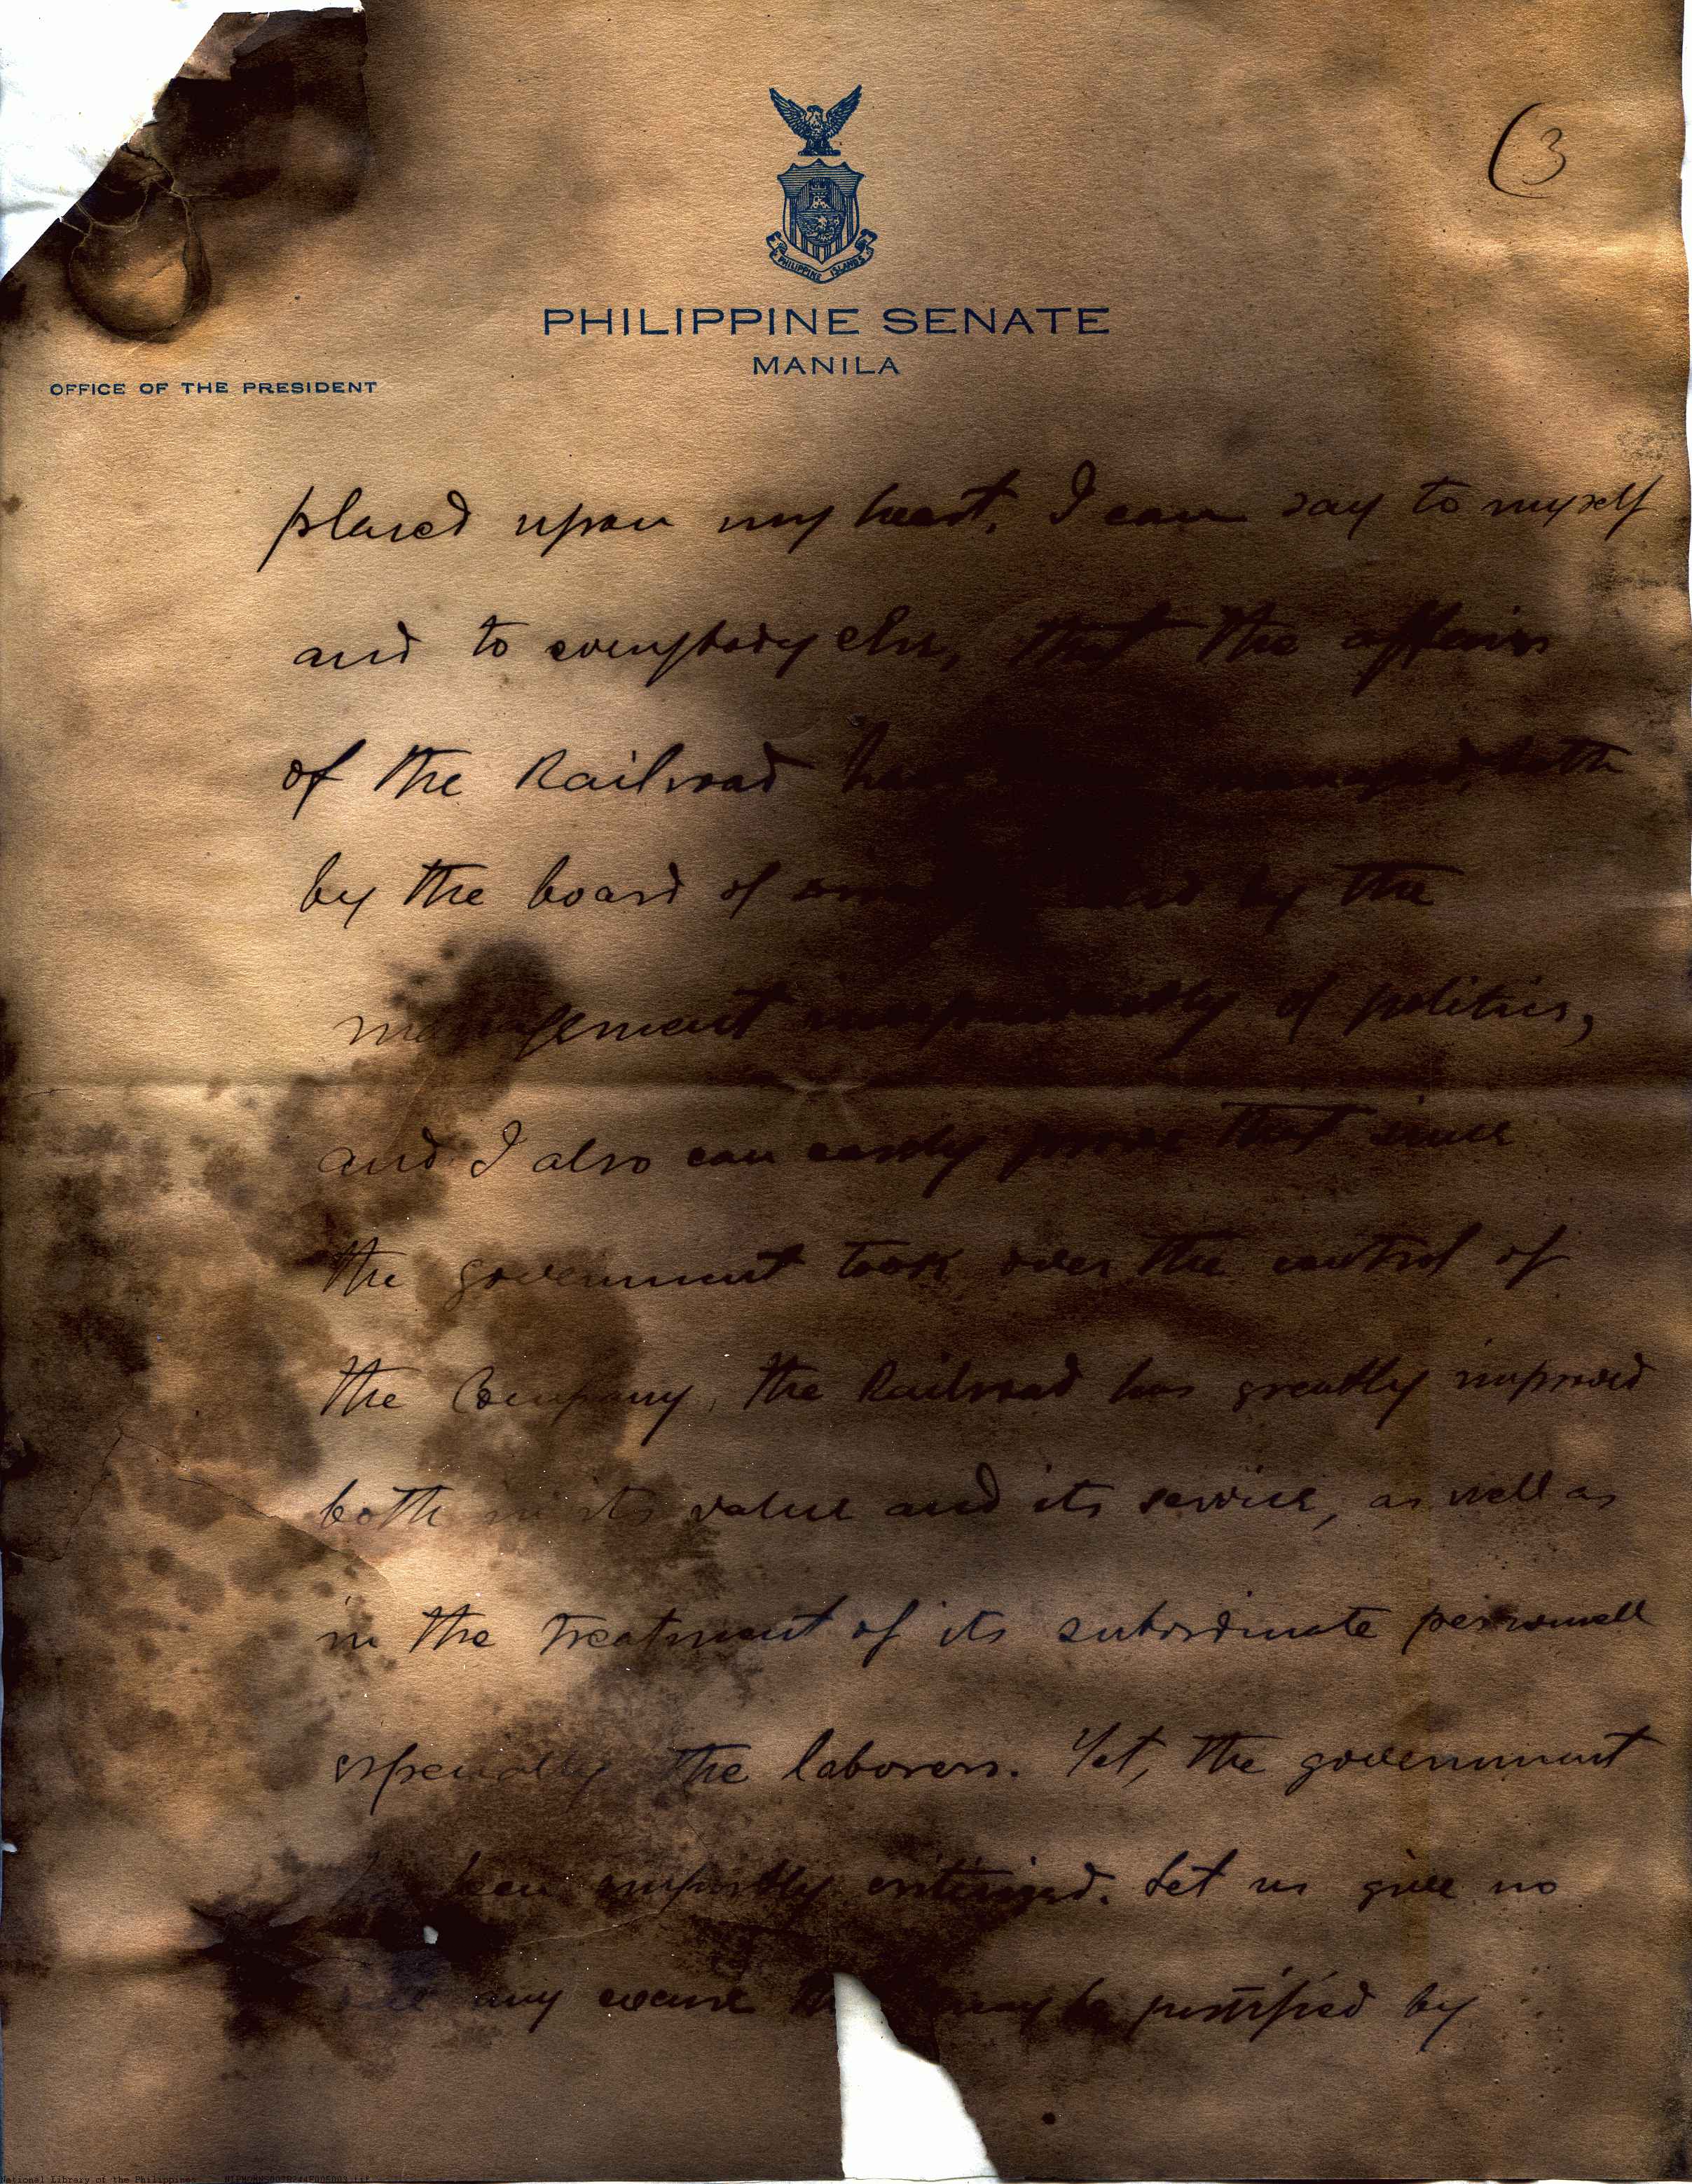 (3
PHILIPPINE ISLANDS
PHILIPPINE SENATE
MANILA
OFFICE OF THE PRESIDENT
placed upon my heart, I can say to myself
and to everybody else, that the affairs
of the Railroad managed, both
by the board of by the
management independently of politics,
and I also can easily prove that since
the government took over the control of
the Company, the Railroad has greatly improved
both in its value and its service, as well as
in the treatment of its subordinate personnell
especially the laborers. Yet, the government
been unjustly criticized. Let us give no
any excuse may be justified by
National Library of the Philippines